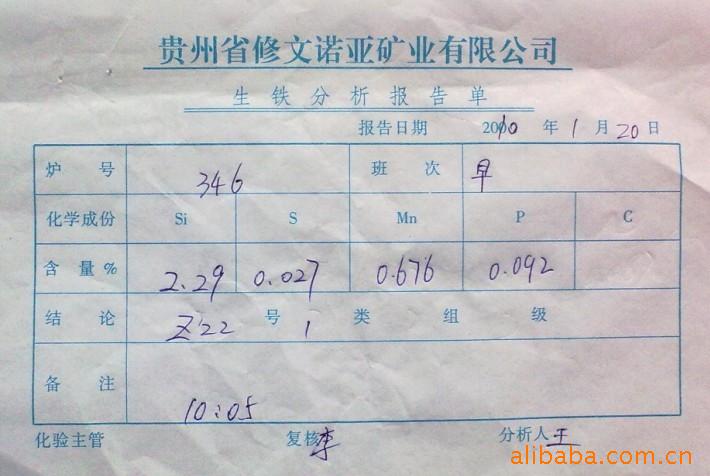 贵州省修文诺亚矿业有限公司
生铁分析报告单
报告日期 2010 年 1 月 20 日
炉号 346 班次 早
化学成份 Si S Mn P C
含量% 2.29 0.027 0.676 0.092
结论 Z22 号 1 类 组 级
备注 10:05
化验主管 复核 李 分析人 王
alibaba.com.cn